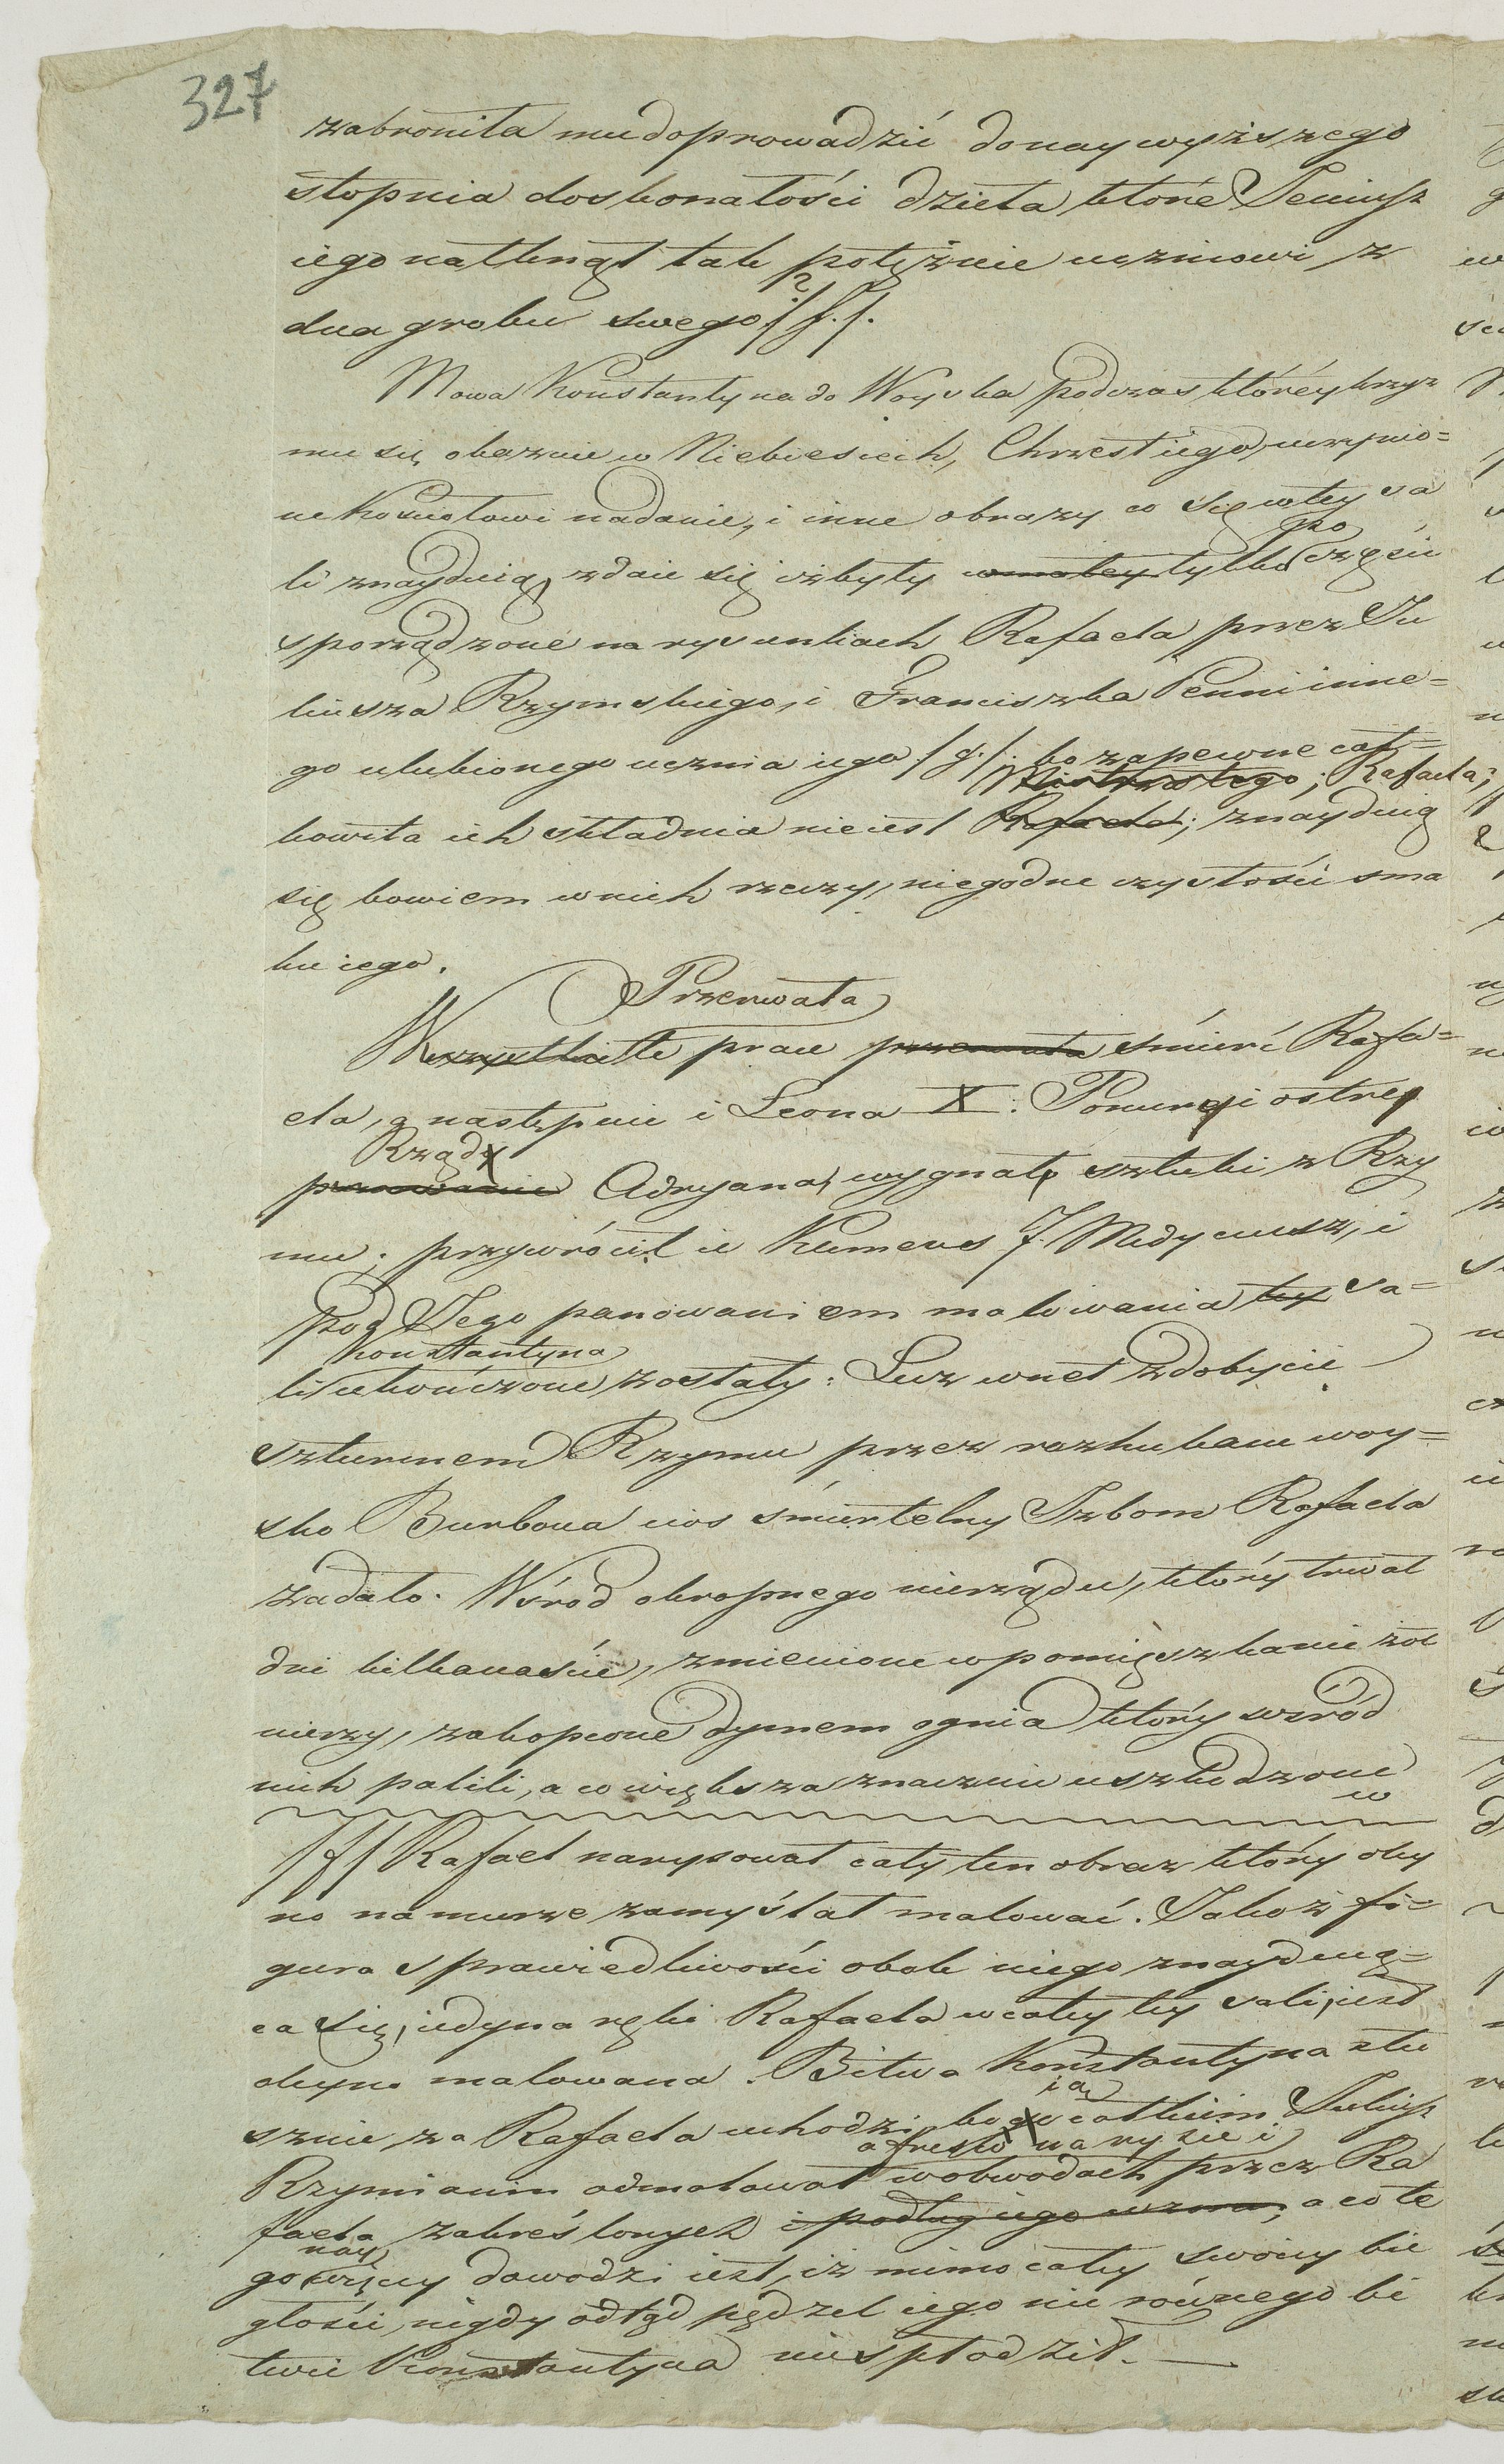 327
zabroniła mu doprowadzić do naywyższego
stopnia doskonałości dzieła które Geniusz
iego natknął tak potężnie uczniowi z
dna grobu swego? /f./.
Mowa Konstantyna do Woyska podczas któréy krzyż
mu się okazuie w Niebiesiech, Chrzest iego, uczynio=
ne Kościołowi nadanie, i inne obrazy co się w téy sa
li znayduią, zdaie się iżbyły tylko po części
sporządzone na rysunkach Rafaela przez Ju
liusza Rzymskiego, i Franciszka Penni inne=
go ulubionego ucznia iego /g./. bo zapewne cał=
Mistrza tego; Rafaela;
kowita ich składnia nie iest Rafaela; znayduią
się bowiem w nich rzeczy, niegodne czystości sma
ku iego.
Przerwała
Wszystkie te prace przerwała śmierć Rafa=
ela, a następnie i Leona X: Ponury i ostry
Rządy
panowanie Adryana, wygnał sztuki z Rzy
mu; przywrócił ie Klemens 7. Medyceusz, i
pod Jego panowaniem malowania tey sa=
Konstantyna
li ukończone zostały: Lecz wnet zdobycie
szturmem Rzymu przez rozhukane woy=
sko Burbona cios śmiertelny Izbom Rafaela
zadało. Wśród okropnego nierządu, który trwał
dni kilkanaście, zmienione w pomięszkanie żoł
nierzy, zakopcone dymem ognia który wśród
nich palili, a co większa znacznie uszkodzone
w
/f/ Rafael narysował cały ten obraz który oley
no na murze zamyślał malować. Jakoż fi=
gura sprawiedliwości obok niego znayduią=
ca się, iedyna ręki Rafaela w całéy téy sali, iest
oleyno malowana. Bitwa Konstantyna słu
sznie za Rafaela uchodzi, bo ią całkiem Juliusz
a fresko na rysie i
Rzymianin odmalował w obwodach przez Ra
faela zakreślonych i podług iego wzoru; a co te
nay
go więcey dowodzi iest, iż mimo całéy swoiey bie
głości, nigdy odtąd pędzel iego nic równego bi
twie Konstantyna nie spłodził. —